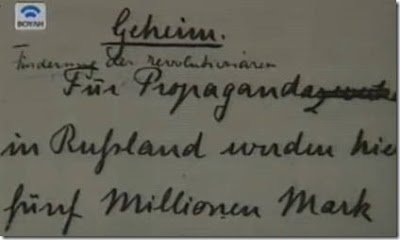 ВОУАН
Geheim.
Förderung der revolutionären
Für Propaganda
in Rußland werden hie
fünf Millionen Mark